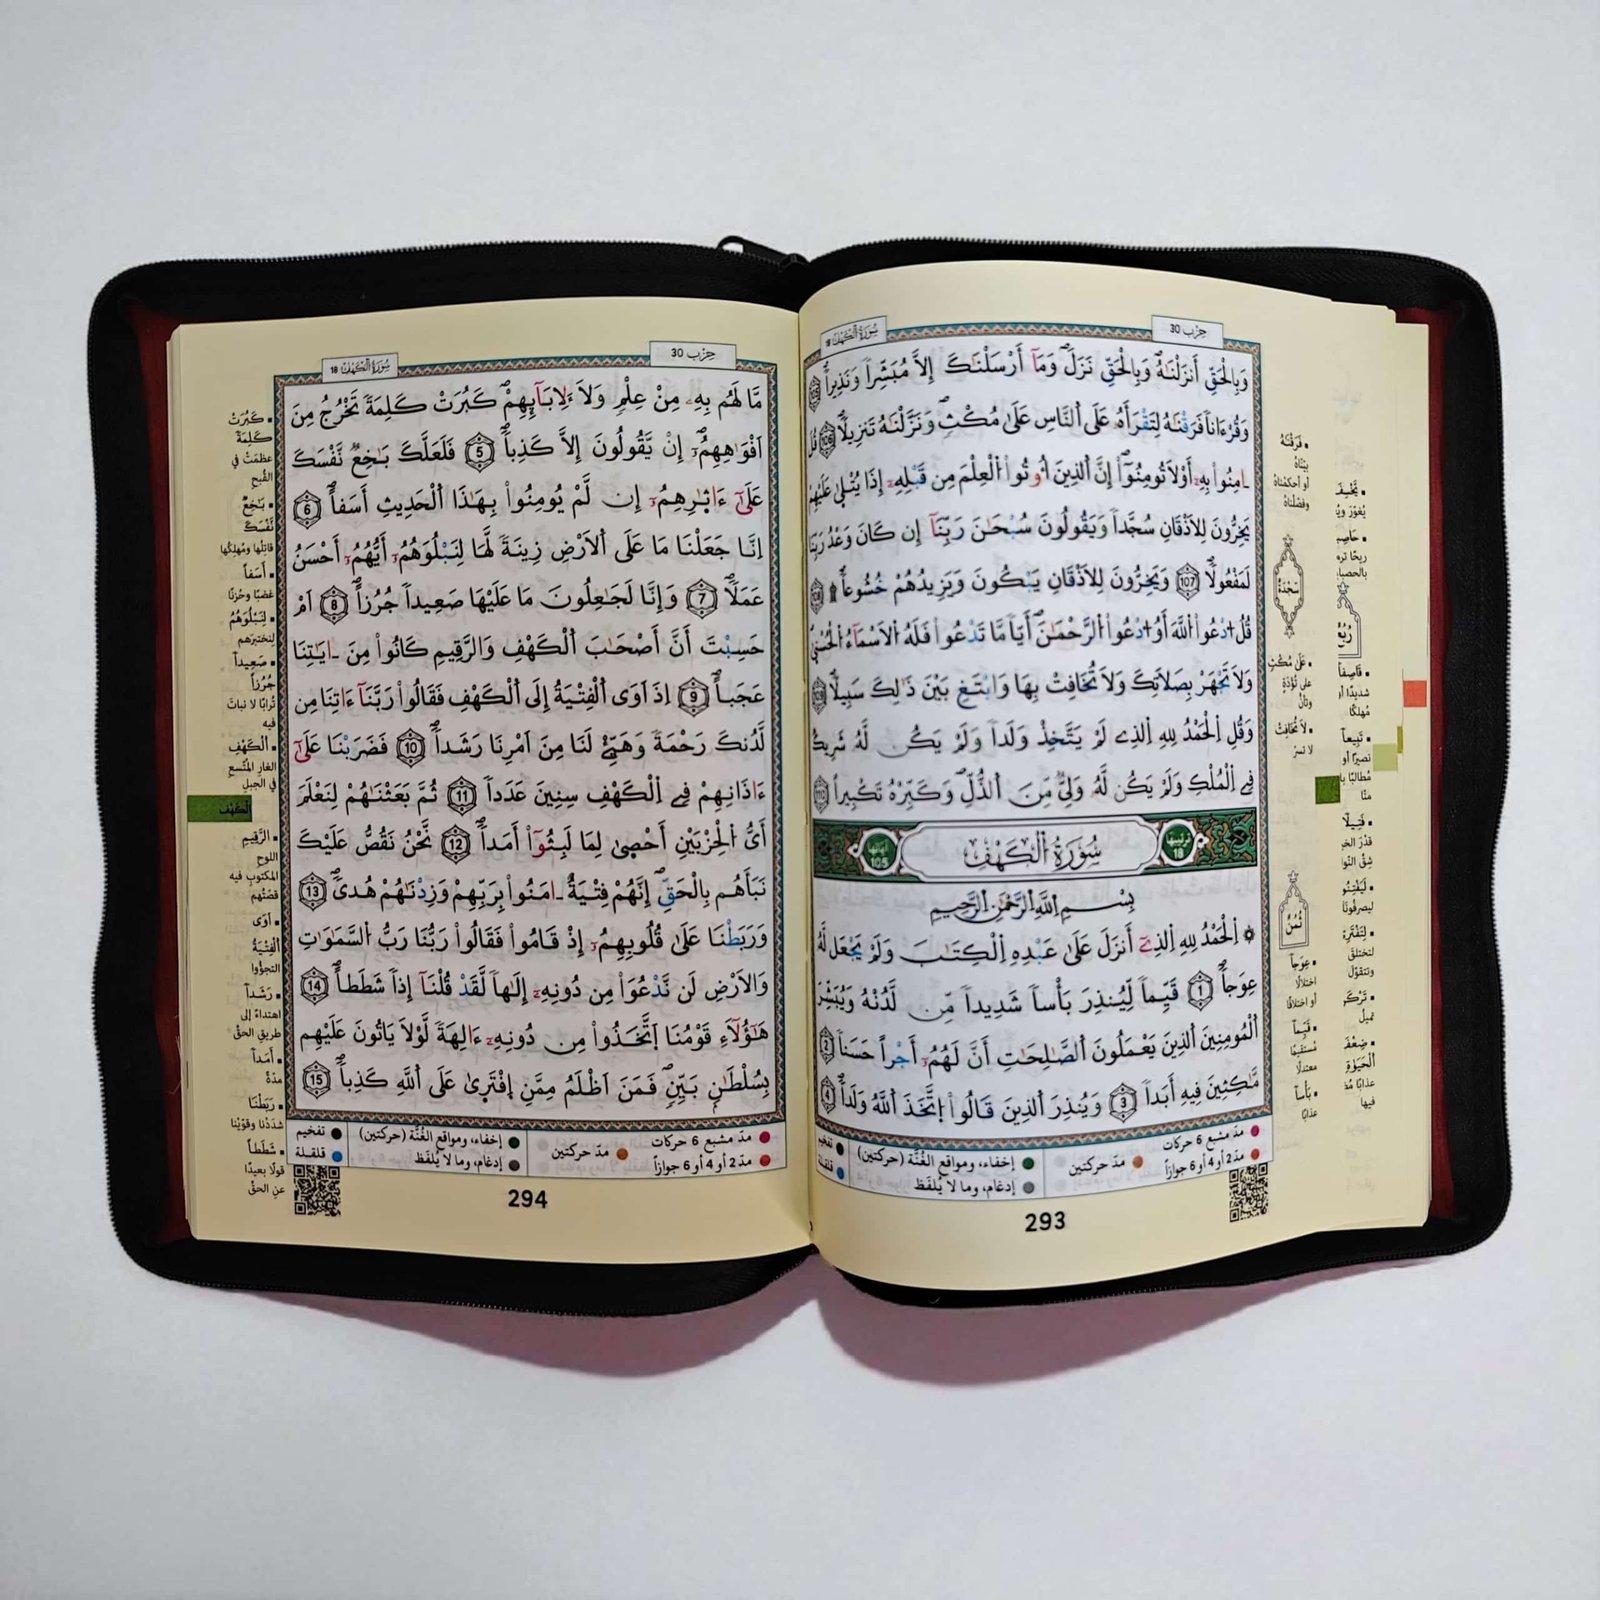 حِزْب 30
سُورَةُ الْكَهْف 18
وَبِالْحَقِّ أَنزَلْنَٰهُ وَبِالْحَقِّ نَزَلَ وَمَآ أَرْسَلْنَٰكَ إِلَّا مُبَشِّراً وَنَذِيراً 105
وَقُرْءَاناً فَرَقْنَٰهُ لِتَقْرَأَهُۥ عَلَى اَلنَّاسِ عَلَىٰ مُكْثٍ وَنَزَّلْنَٰهُ تَنزِيلاً 106 قُلَ
اٰمِنُواْ بِهِۦٓ أَوْ لَا تُومِنُوٓاْ إِنَّ اَلذِينَ أُوتُواْ اُلْعِلْمَ مِن قَبْلِهِۦٓ إِذَا يُتْلَىٰ عَلَيْهِمْ
يَخِرُّونَ لِلَاذْقَانِ سُجَّداً وَيَقُولُونَ سُبْحَٰنَ رَبِّنَآ إِن كَانَ وَعْدُ رَبِّنَا
لَمَفْعُولاً 107 وَيَخِرُّونَ لِلَاذْقَانِ يَبْكُونَ وَيَزِيدُهُمْ خُشُوعاً ۩ 108
قُلُ اُدْعُواْ اُللَّهَ أَوُ اُدْعُواْ اُلرَّحْمَٰنَ أَيّاً مَّا تَدْعُواْ فَلَهُ اُلَاسْمَآءُ اُلْحُسْنَىٰ
وَلَا تَجْهَرْ بِصَلَاتِكَ وَلَا تُخَافِتْ بِهَا وَابْتَغِ بَيْنَ ذَٰلِكَ سَبِيلاً 109
وَقُلِ اِلْحَمْدُ لِلهِ اِلذِے لَمْ يَتَّخِذْ وَلَداً وَلَمْ يَكُن لَّهُۥ شَرِيكٌ
فِے اِلْمُلْكِ وَلَمْ يَكُن لَّهُۥ وَلِيٌّ مِّنَ اَلذُّلِّ وَكَبِّرْهُ تَكْبِيراً 110
ترتيبها 18 سُورَةُ الْكَهْفِ آياتها 105
بِسْمِ اِللَّهِ اِلرَّحْمَٰنِ اِلرَّحِيمِ
۞ اِلْحَمْدُ لِلهِ اِلذِےٓ أَنزَلَ عَلَىٰ عَبْدِهِ اِلْكِتَٰبَ وَلَمْ يَجْعَل لَّهُۥ
عِوَجاً 1 قَيِّماً لِّيُنذِرَ بَأْساً شَدِيداً مِّن لَّدُنْهُ وَيُبَشِّرَ
اَلْمُومِنِينَ اَلذِينَ يَعْمَلُونَ اَلصَّٰلِحَٰتِ أَنَّ لَهُمُۥٓ أَجْراً حَسَناً 2
مَّٰكِثِينَ فِيهِ أَبَداً 3 وَيُنذِرَ اَلذِينَ قَالُواْ اُتَّخَذَ اَللَّهُ وَلَداً 4
• فَرَقْنَٰهُ
بيّناهُ
أو أحكمناهُ
وفصّلناهُ
سَجْدَة
• عَلَىٰ مُكْثٍ
على تُؤَدَةٍ
وتأنٍّ
• لَا تُخَافِتْ
لا تسرّ
ثُمُنْ
• عِوَجاً
اختلالًا
أو اختلافًا
• قَيِّماً
مستقيمًا
معتدلًا
• بَأْساً
عذابًا
رُبُعْ
● مدّ مشبع 6 حركات
● مدّ 2 أو 4 أو 6 جوازاً
● مدّ حركتين
● إخفاء، ومواقع الغُنَّة (حركتين)
● إدغام، وما لا يُلفَظ
● تفخيم
● قلقلة
293
حِزْب 30
سُورَةُ الْكَهْف 18
مَّا لَهُم بِهِۦ مِنْ عِلْمٍ وَلَا ءَلِابَآئِهِمْ كَبُرَتْ كَلِمَةً تَخْرُجُ مِنَ
اَفْوَٰهِهِمُۥٓ إِنْ يَّقُولُونَ إِلَّا كَذِباً 5 فَلَعَلَّكَ بَٰخِعٌ نَّفْسَكَ
عَلَىٰٓ ءَاثٰ۪رِهِمُۥٓ إِن لَّمْ يُومِنُواْ بِهَٰذَا اَلْحَدِيثِ أَسَفاً 6
اِنَّا جَعَلْنَا مَا عَلَى اَلَارْضِ زِينَةً لَّهَا لِنَبْلُوَهُمُۥٓ أَيُّهُمُۥٓ أَحْسَنُ
عَمَلاً 7 وَإِنَّا لَجَٰعِلُونَ مَا عَلَيْهَا صَعِيداً جُرُزاً 8 اَمْ
حَسِبْتَ أَنَّ أَصْحَٰبَ اَلْكَهْفِ وَالرَّقِيمِ كَانُواْ مِنَ اٰيَٰتِنَا
عَجَباً 9 اِذَ اَوَى اَلْفِتْيَةُ إِلَى اَلْكَهْفِ فَقَالُواْ رَبَّنَآ ءَاتِنَا مِن
لَّدُنكَ رَحْمَةً وَهَيِّئْ لَنَا مِنَ اَمْرِنَا رَشَداً 10 فَضَرَبْنَا عَلَىٰٓ
ءَاذَانِهِمْ فِے اِلْكَهْفِ سِنِينَ عَدَداً 11 ثُمَّ بَعَثْنَٰهُمْ لِنَعْلَمَ
أَيُّ اُلْحِزْبَيْنِ أَحْصَىٰ لِمَا لَبِثُوٓاْ أَمَداً 12 نَّحْنُ نَقُصُّ عَلَيْكَ
نَبَأَهُم بِالْحَقِّ إِنَّهُمْ فِتْيَةٌ اٰمَنُواْ بِرَبِّهِمْ وَزِدْنَٰهُمْ هُدىً 13
وَرَبَطْنَا عَلَىٰ قُلُوبِهِمُۥٓ إِذْ قَامُواْ فَقَالُواْ رَبُّنَا رَبُّ اُلسَّمَٰوَٰتِ
وَالَارْضِ لَن نَّدْعُوَاْ مِن دُونِهِۦٓ إِلَٰهاً لَّقَدْ قُلْنَآ إِذاً شَطَطاً 14
هَٰٓؤُلَآءِ قَوْمُنَا اَتَّخَذُواْ مِن دُونِهِۦٓ ءَالِهَةً لَّوْلَا يَاتُونَ عَلَيْهِم
بِسُلْطَٰنٍ بَيِّنٍ فَمَنَ اَظْلَمُ مِمَّنِ اِفْتَرَىٰ عَلَى اَللَّهِ كَذِباً 15
• كَبُرَتْ
كَلِمَةً
عظمَتْ في
القُبح
• بَٰخِعٌ
نَّفْسَكَ
قاتِلُها ومُهلِكُها
• أَسَفاً
غضبًا وحُزنًا
• لِنَبْلُوَهُمْ
لِنختبرَهم
• صَعِيداً
جُرُزاً
تُرابًا لا نباتَ
فيه
• اَلْكَهْفِ
الغارِ المُتَّسعِ
في الجبلِ
الكهف
• الرَّقِيمِ
اللوحِ
المكتوبِ فيه
قصّتُهم
• اَوَى
اَلْفِتْيَةُ
التجؤوا
• رَشَداً
اهتداءً إلى
طريقِ الحقِّ
• أَمَداً
مدّةً
• رَبَطْنَا
شدَدْنا وقوّيْنا
• شَطَطاً
قولًا بعيدًا
عنِ الحقِّ
● مدّ مشبع 6 حركات
● مدّ 2 أو 4 أو 6 جوازاً
● مدّ حركتين
● إخفاء، ومواقع الغُنَّة (حركتين)
● إدغام، وما لا يُلفَظ
● تفخيم
● قلقلة
294